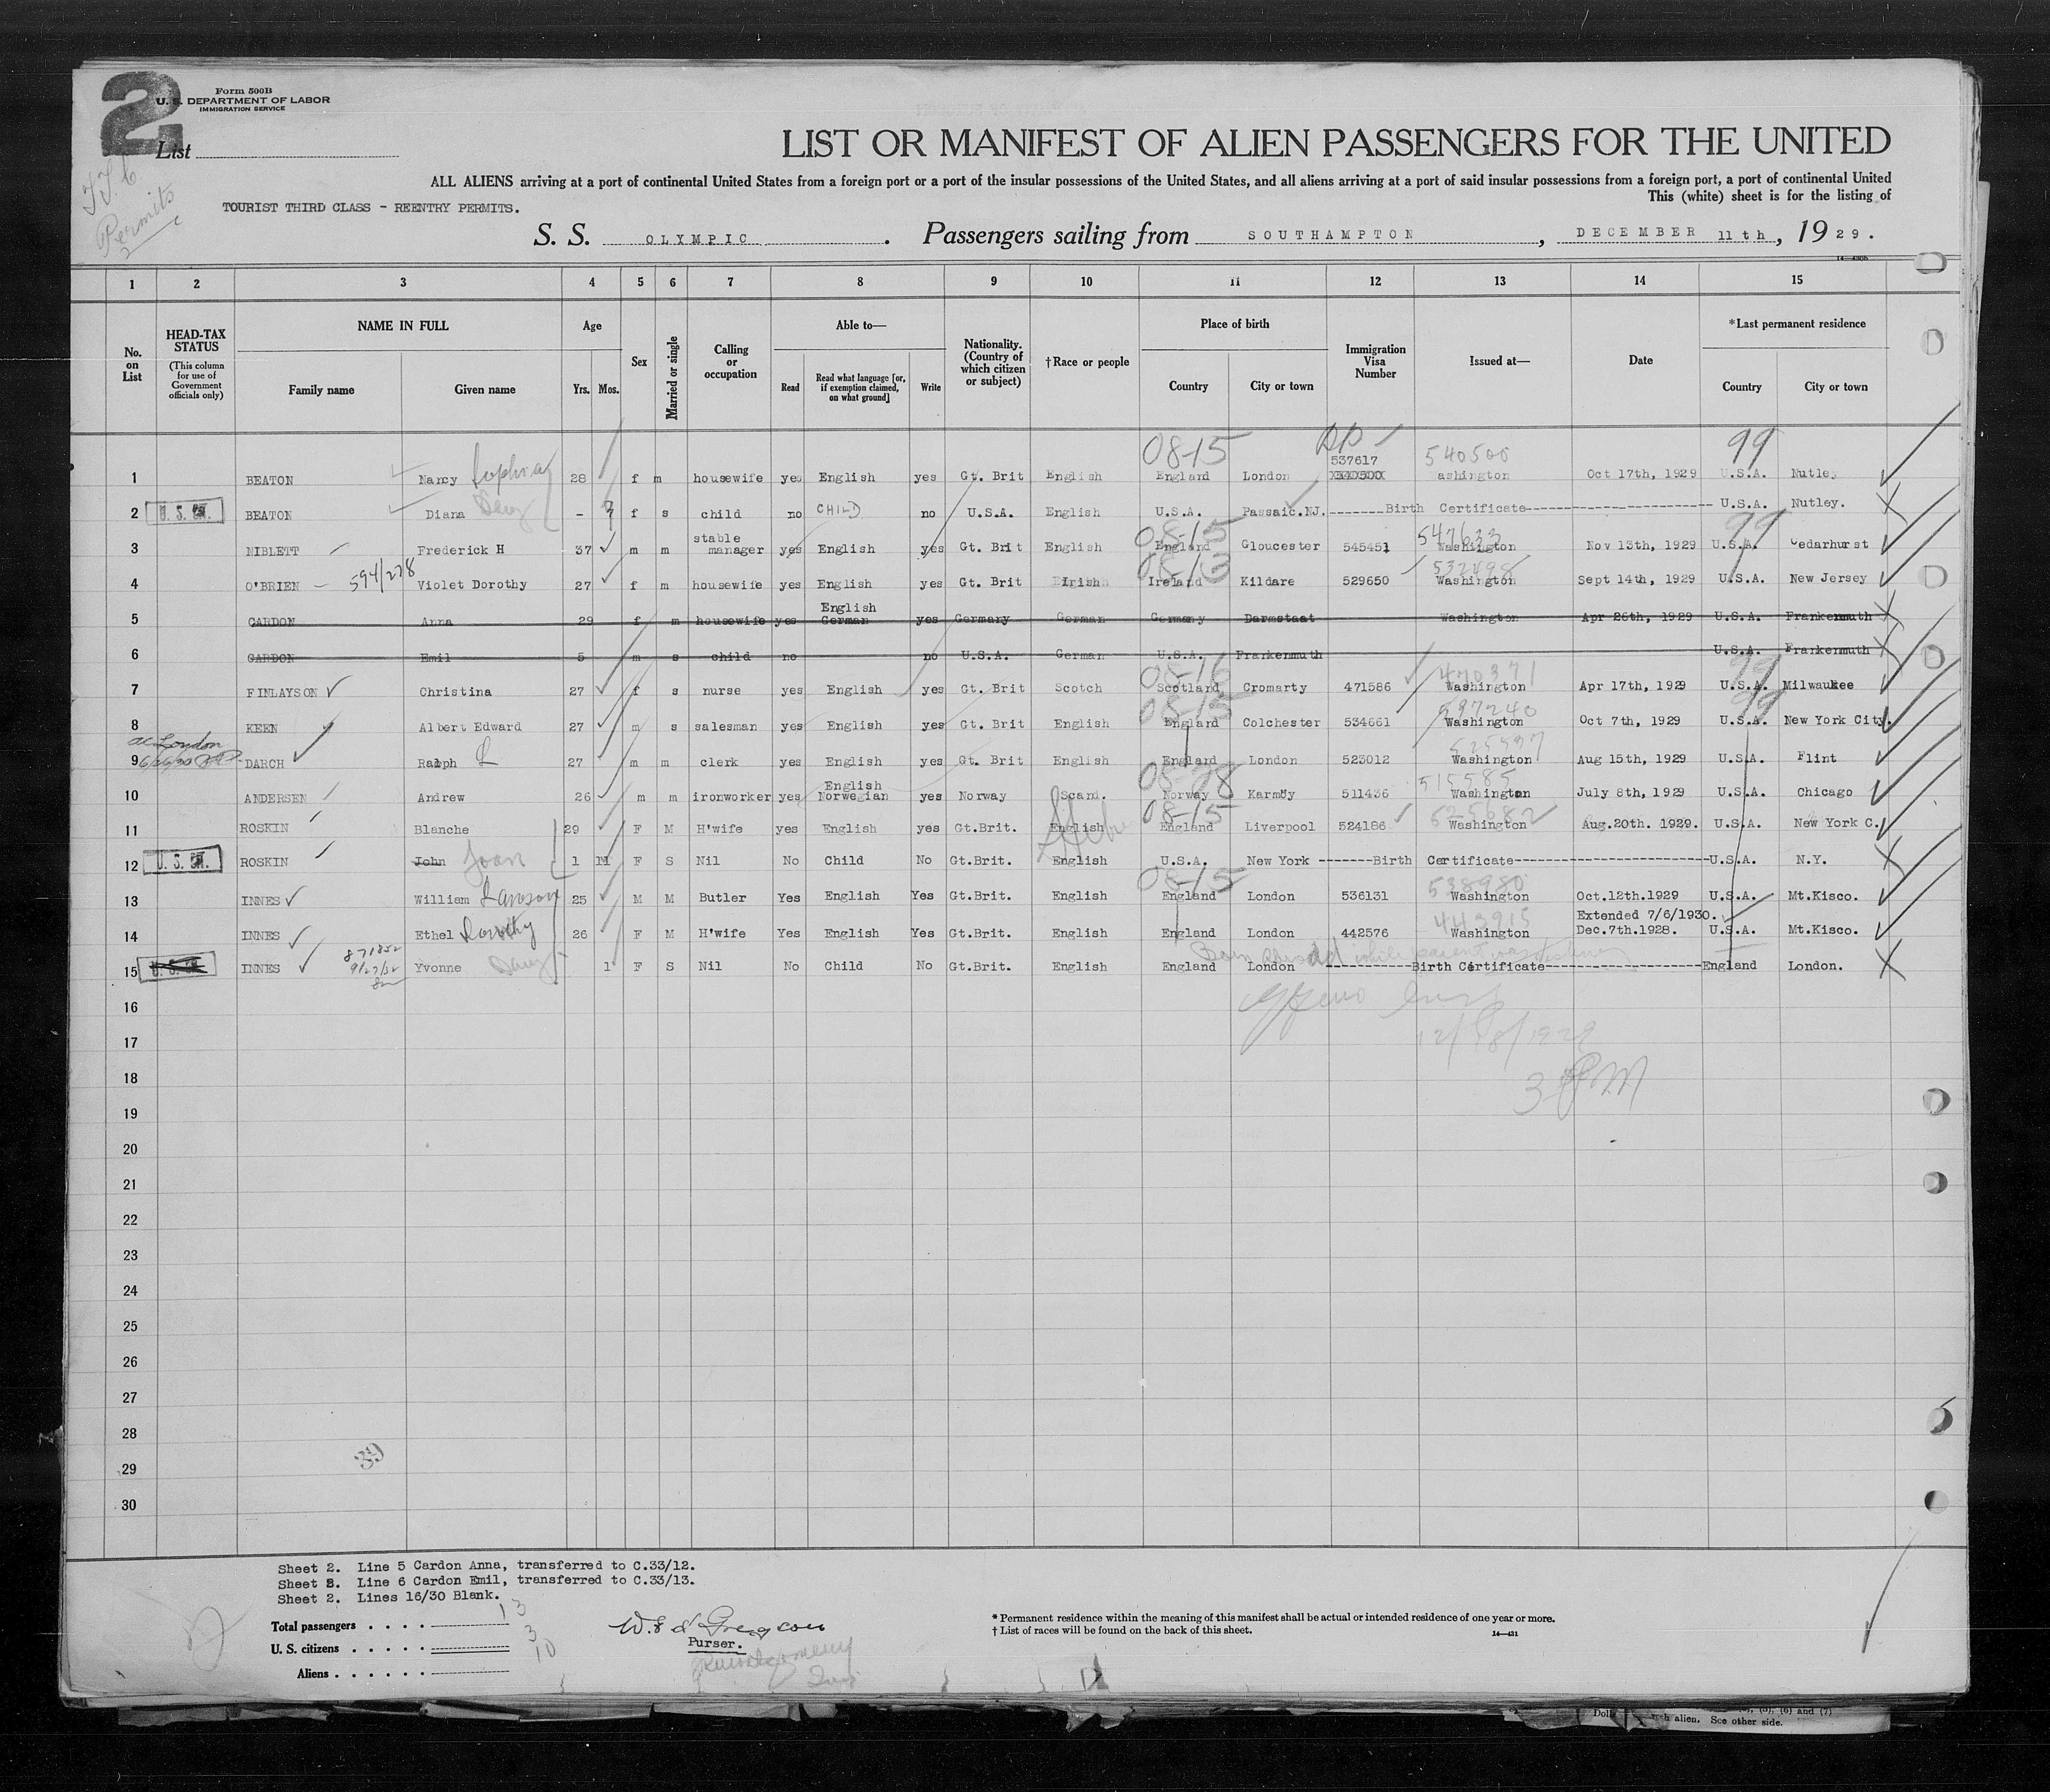 2
Form 500B
U. S. DEPARTMENT OF LABOR
IMMIGRATION SERVICE
List
Permits
2
LIST OR MANIFEST OF ALIEN PASSENGERS FOR THE UNITED
ALL ALIENS arriving at a port of continental United States from a foreign port or a port of the insular possessions of the United States, and all aliens arriving at a port of said insular possessions from a foreign port, a port of continental United
This (white) sheet is for the listing of
TOURIST THIRD CLASS - REENTRY PERMITS.
S. S. OLYMPIC. Passengers sailing from SOUTHAMPTON, DECEMBER 11th, 1929.
1 2 3 4 5 6 7 8 9 10 11 12 13 14 15
No. on List
HEAD-TAX STATUS (This column for use of Government officials only)
NAME IN FULL Family name Given name
Age Yrs. Mos.
Sex
Married or single
Calling or occupation
Able to— Read Read what language [or, if exemption claimed, on what ground] Write
Nationality. (Country of which citizen or subject)
†Race or people
Place of birth Country City or town
Immigration Visa Number
Issued at—
Date
*Last permanent residence Country City or town
08-15 540500 99
537617
1 BEATON Nancy Sophia 28 f m housewife yes English yes Gt. Brit English England London 540500 ashington Oct 17th, 1929 U.S.A. Nutley
2 BEATON Diana - 7 f s child no CHILD no U.S.A. English U.S.A. Passaic.NJ. -------Birth Certificate------- U.S.A. Nutley.
08-15 547633 99
3 NIBLETT Frederick H 37 m m stable manager yes English yes Gt. Brit English England Gloucester 545451 Washington Nov 13th, 1929 U.S.A. Cedarhurst
594/278 08-13 532498
4 O'BRIEN Violet Dorothy 27 f m housewife yes English yes Gt. Brit Irish Ireland Kildare 529650 Washington Sept 14th, 1929 U.S.A. New Jersey
5 CARDON Anna 29 f m housewife yes English German yes Germany German Germany Darmstaat Washington Apr 26th, 1929 U.S.A. Frankenmuth
6 CARDON Emil 5 m s child no no U.S.A. German U.S.A. Frankenmuth U.S.A. Frankenmuth
08-16 470371 99
7 FINLAYSON Christina 27 f s nurse yes English yes Gt. Brit Scotch Scotland Cromarty 471586 Washington Apr 17th, 1929 U.S.A. Milwaukee
08-15 99
8 KEEN Albert Edward 27 m s salesman yes English yes Gt. Brit English England Colchester 534661 Washington Oct 7th, 1929 U.S.A. New York City.
London
9 DARCH Ralph L 27 m m clerk yes English yes Gt. Brit English England London 523012 Washington Aug 15th, 1929 U.S.A. Flint
08-28 515585
10 ANDERSEN Andrew 26 m m ironworker yes English Norwegian yes Norway Scand. Norway Karmöy 511436 Washington July 8th, 1929 U.S.A. Chicago
08-15 525682
11 ROSKIN Blanche 29 F M H'wife yes English yes Gt.Brit. English England Liverpool 524186 Washington Aug.20th. 1929. U.S.A. New York C.
12 U. S. ROSKIN John Joan 1 11 F S Nil No Child No Gt.Brit. English U.S.A. New York -------Birth Certificate-------U.S.A. N.Y.
08-15 538980
13 INNES William Lawson 25 M M Butler Yes English Yes Gt.Brit. English England London 536131 Washington Oct.12th.1929 U.S.A. Mt.Kisco.
443915 Extended 7/6/1930.
14 INNES Ethel Dorothy 26 F M H'wife Yes English Yes Gt.Brit. English England London 442576 Washington Dec.7th.1928. U.S.A. Mt.Kisco.
871852
9/27/32
15 INNES Yvonne 1 F S Nil No Child No Gt.Brit. English England London ----------Birth Certificate----------England London.
16
12/18/1929
17
18
3 PM
19
20
21
22
23
24
25
26
27
28
29
30
39
Sheet 2. Line 5 Cardon Anna, transferred to C.33/12.
Sheet 2. Line 6 Cardon Emil, transferred to C.33/13.
Sheet 2. Lines 16/30 Blank.
Total passengers . . . . 13
U. S. citizens . . . . . 3
Aliens . . . . . . 10
Purser.
* Permanent residence within the meaning of this manifest shall be actual or intended residence of one year or more.
† List of races will be found on the back of this sheet.
14—431
, (5), (6) and (7)
alien. See other side.